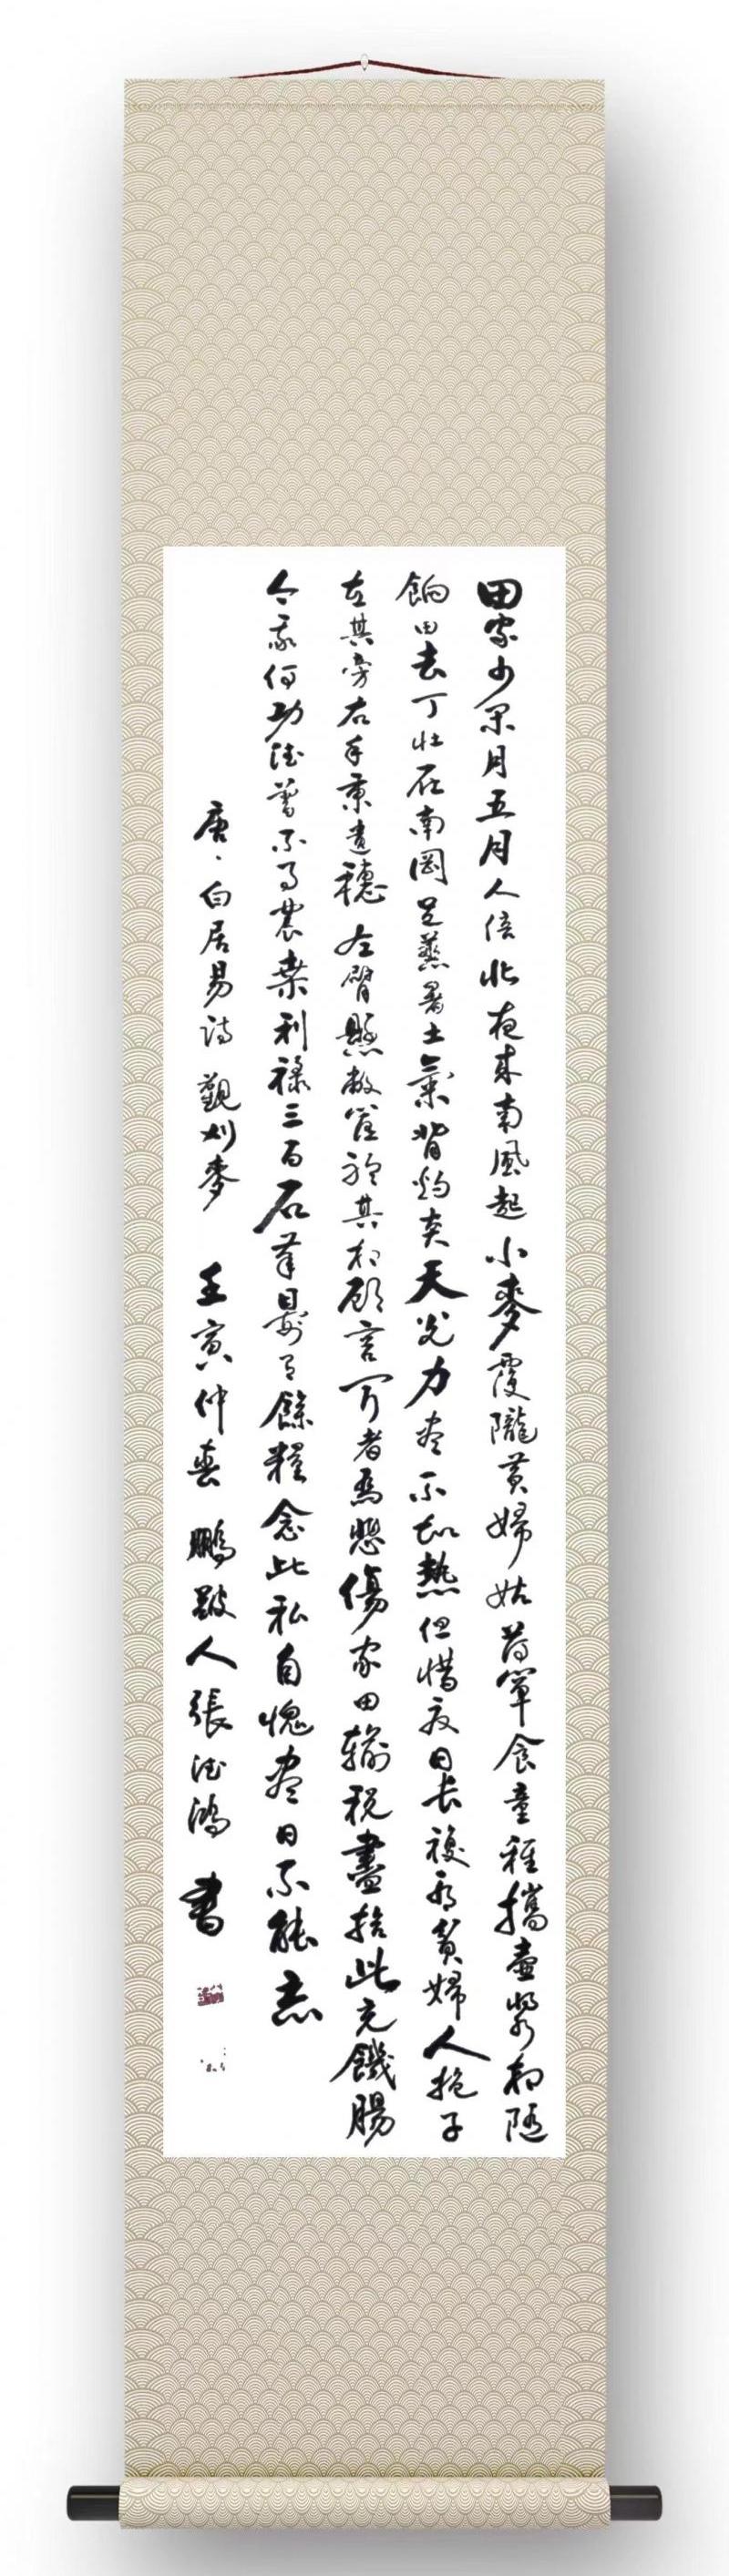 田家少閑月五月人倍忙夜来南風起小麥覆隴黄婦姑荷簞食童稚攜壺漿相隨
餉田去丁壯在南岡足蒸暑土氣背灼炎天光力盡不知熱但惜夏日長複見貧婦人抱子
在其旁右手秉遺穗左臂懸敝筐聽其相顧言聞者為悲傷家田輸税盡拾此充饑腸
今我何功德曾不事農桑利祿三百石歲晏有餘糧念此私自愧盡日不能忘
唐·白居易詩 觀刈麥 壬寅仲春 鵬人張德鴻書